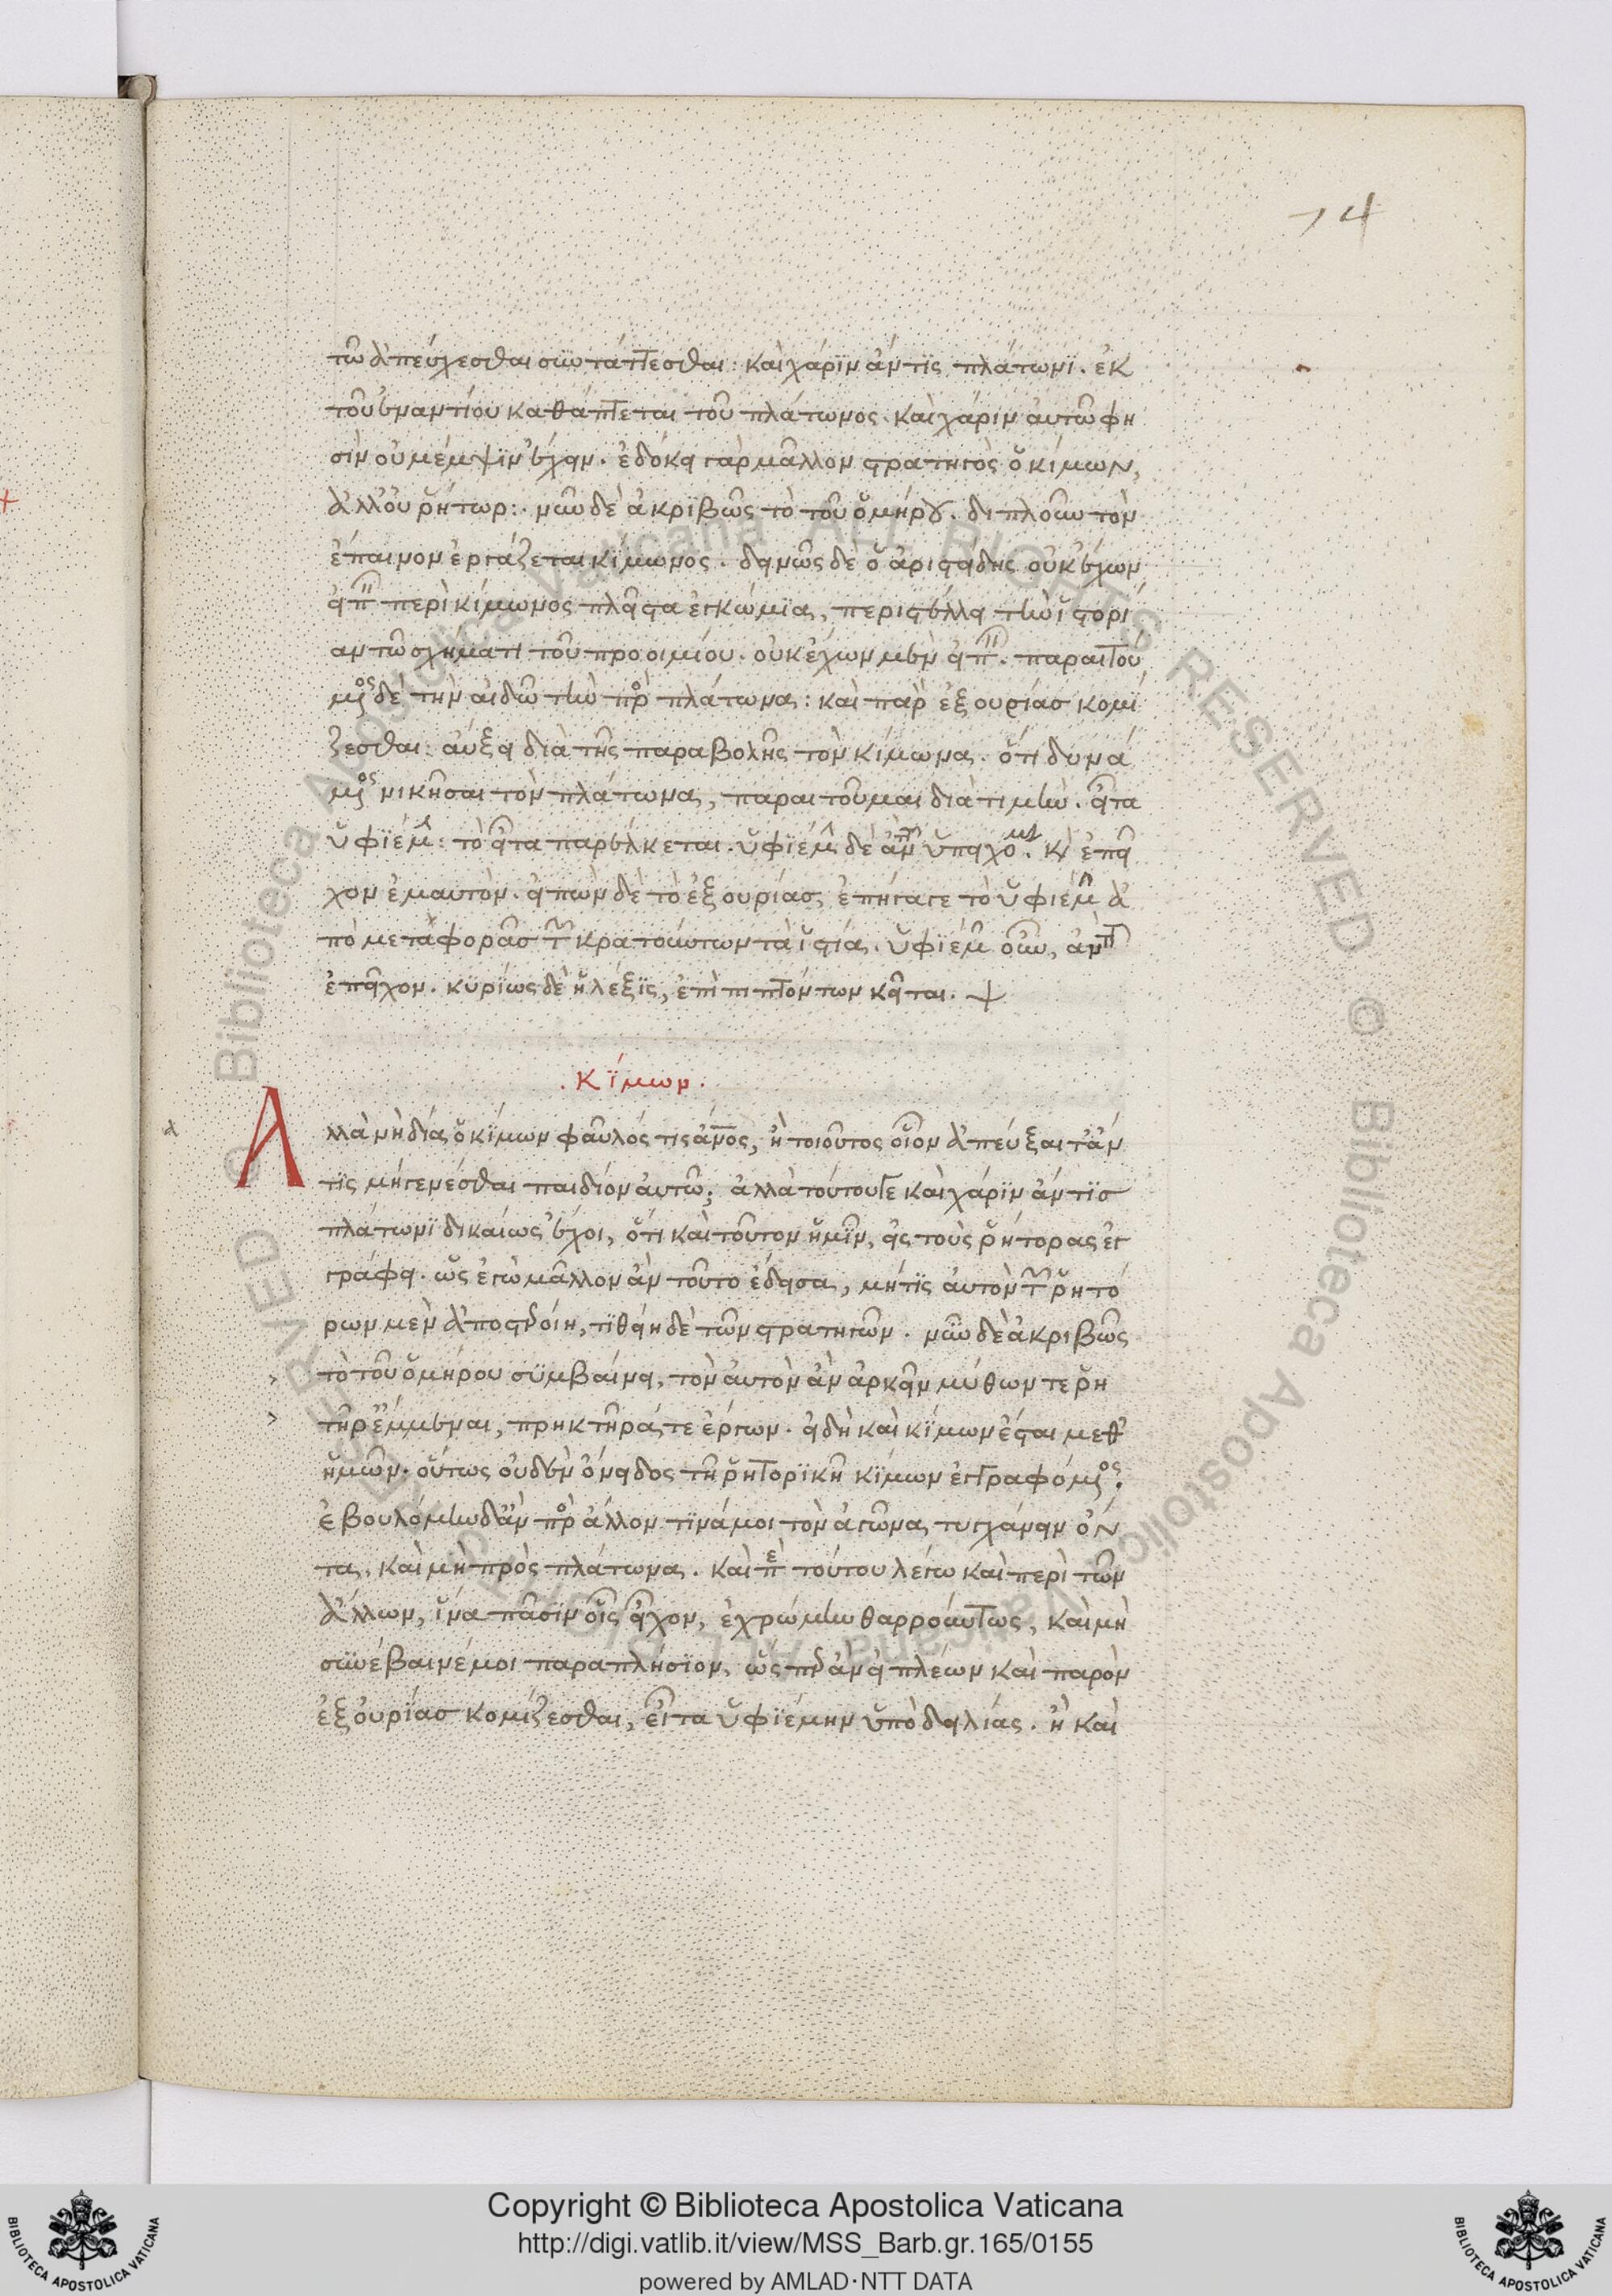 74
τῶ ἀπεύχεσθαι συντάττεσθαι: καὶ χάριν ἄν τις πλάτωνι. ἐκ
τοῦ ἐναντίου καθάπτεται τοῦ πλάτωνος. καὶ χάριν αὐτῶ φη
σὶν οὐ μέμψιν ἔχειν. ἐδόκει γὰρ μᾶλλον στρατηγὸς ὁ κίμων,
ἀλλ' οὐ ῥήτωρ: νῦν δὲ ἀκριβῶς τὸ τοῦ ὁμήρου. διπλοῦν τὸν
ἔπαινον ἐργάζεται κίμωνος. δεινῶς δὲ ὁ ἀριστείδης οὐκ ἔχων
εἰπεῖν περὶ κίμωνος πλεῖστα ἐγκώμια, περιστέλλει τὴν ἱστορί
αν τῶ σχήματι τοῦ προοιμίου. οὐκ ἔχων μὲν εἰπεῖν. παραιτού
μενος δὲ τὴν αἰδῶ τὴν πρὸς πλάτωνα: καὶ παρ' ἐξουρίασ κομί
ζεσθαι: αὔξει διὰ τῆς παραβολῆς τὸν κίμωνα. ὅτι δυνά
μενος νικῆσαι τὸν πλάτωνα, παραιτοῦμαι διὰ τιμὴν. εἶτα
ὑφιέμην: τὸ εἶτα παρέλκεται. ὑφιέμην δὲ ἀντὶ ὑπείχομεν. καὶ ἐπεῖ
χον ἐμαυτὸν. εἰπὼν δὲ τὸ ἐξουρίασ, ἐπήγαγε τὸ ὑφιέμην ἀ
πὸ μεταφορᾶσ τῶν κρατούντων τὰ ἱστία. ὑφιέμην οὖν, ἀντὶ
ἐπεῖχον. κυρίως δὲ ἡ λέξις, ἐπὶ πιπτόντων κεῖται.
. Κίμων .
α
Αλλὰ νὴ δία ὁ κίμων φαῦλός τις ἄνος, ἢ τοιοῦτος οἷον ἀπεύξαιτ' ἄν
τις μὴ γενέσθαι παιδίον αὐτῶ; ἀλλὰ τούτου γε καὶ χάριν ἄν τισ
πλάτωνι δικαίως ἔχοι, ὅτι καὶ τοῦτον ἡμῖν, εἰς τοὺς ῥήτορας ἐγ
γράφει. ὡς ἐγὼ μᾶλλον ἂν τοῦτο ἔδεισα, μή τις αὐτὸν τῶν ῥητό
ρων μὲν ἀποστεροίη, τιθείη δὲ τῶν στρατηγῶν. νῦν δὲ ἀκριβῶς
τὸ τοῦ ὁμήρου συμβαίνει, τὸν αὐτὸν ἂν ἀρκεῖν μύθων τε ῥη
τῆρ' ἔμμεναι, πρηκτῆρά τε ἔργων. εἰ δὴ καὶ κίμων ἔσται μεθ'
ἡμῶν. οὕτως οὐδὲν ὄνειδος τῆ ῥητορικῆ κίμων ἐγγραφόμενος.
ἐβουλόμην δ' ἂν πρὸς ἄλλον τινά μοι τὸν ἀγῶνα τυγχάνειν ὄν
τα, καὶ μὴ πρὸς πλάτωνα. καὶ περὶ τούτου λέγω καὶ περὶ τῶν
ἄλλων, ἵνα πᾶσιν οἷς εἶχον, ἐχρώμην θαρρούντως, καὶ μὴ
συνέβαινέ μοι παραπλήσιον, ὥσπερ ἂν εἰ πλέων καὶ παρὸν
ἐξ οὐρίασ κομίζεσθαι, εἶτα ὑφιέμην ὑπὸ δειλίας. ἢ καὶ
Copyright © Biblioteca Apostolica Vaticana
http://digi.vatlib.it/view/MSS_Barb.gr.165/0155
powered by AMLAD·NTT DATA